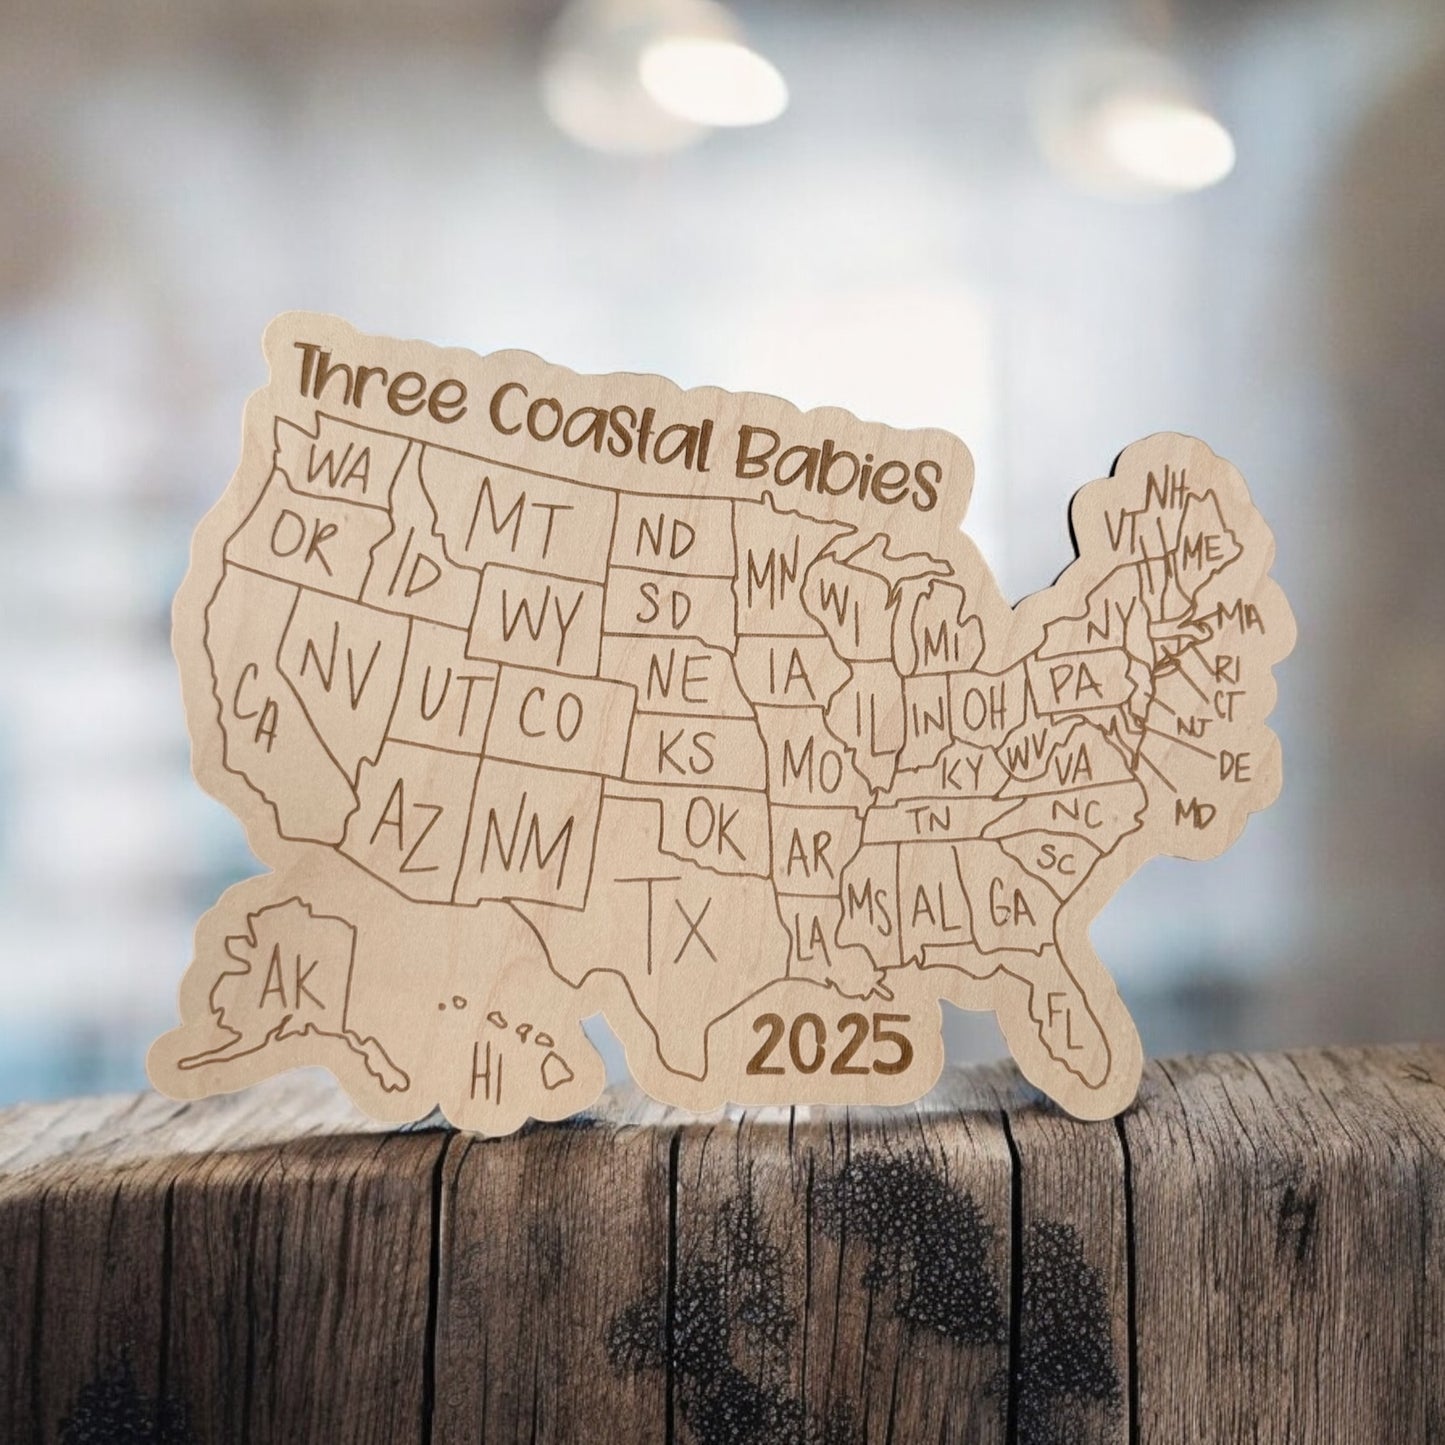 Three Coastal Babies
WA
MT
ND
MN
NH
VT
ME
OR
ID
WY
SD
WI
MI
NY
MA
NV
UT
CO
NE
IA
IL
IN
OH
PA
RI
CT
NJ
CA
KS
MO
KY
WV
VA
DE
MD
AZ
NM
OK
AR
TN
NC
SC
TX
LA
MS
AL
GA
FL
AK
HI
2025